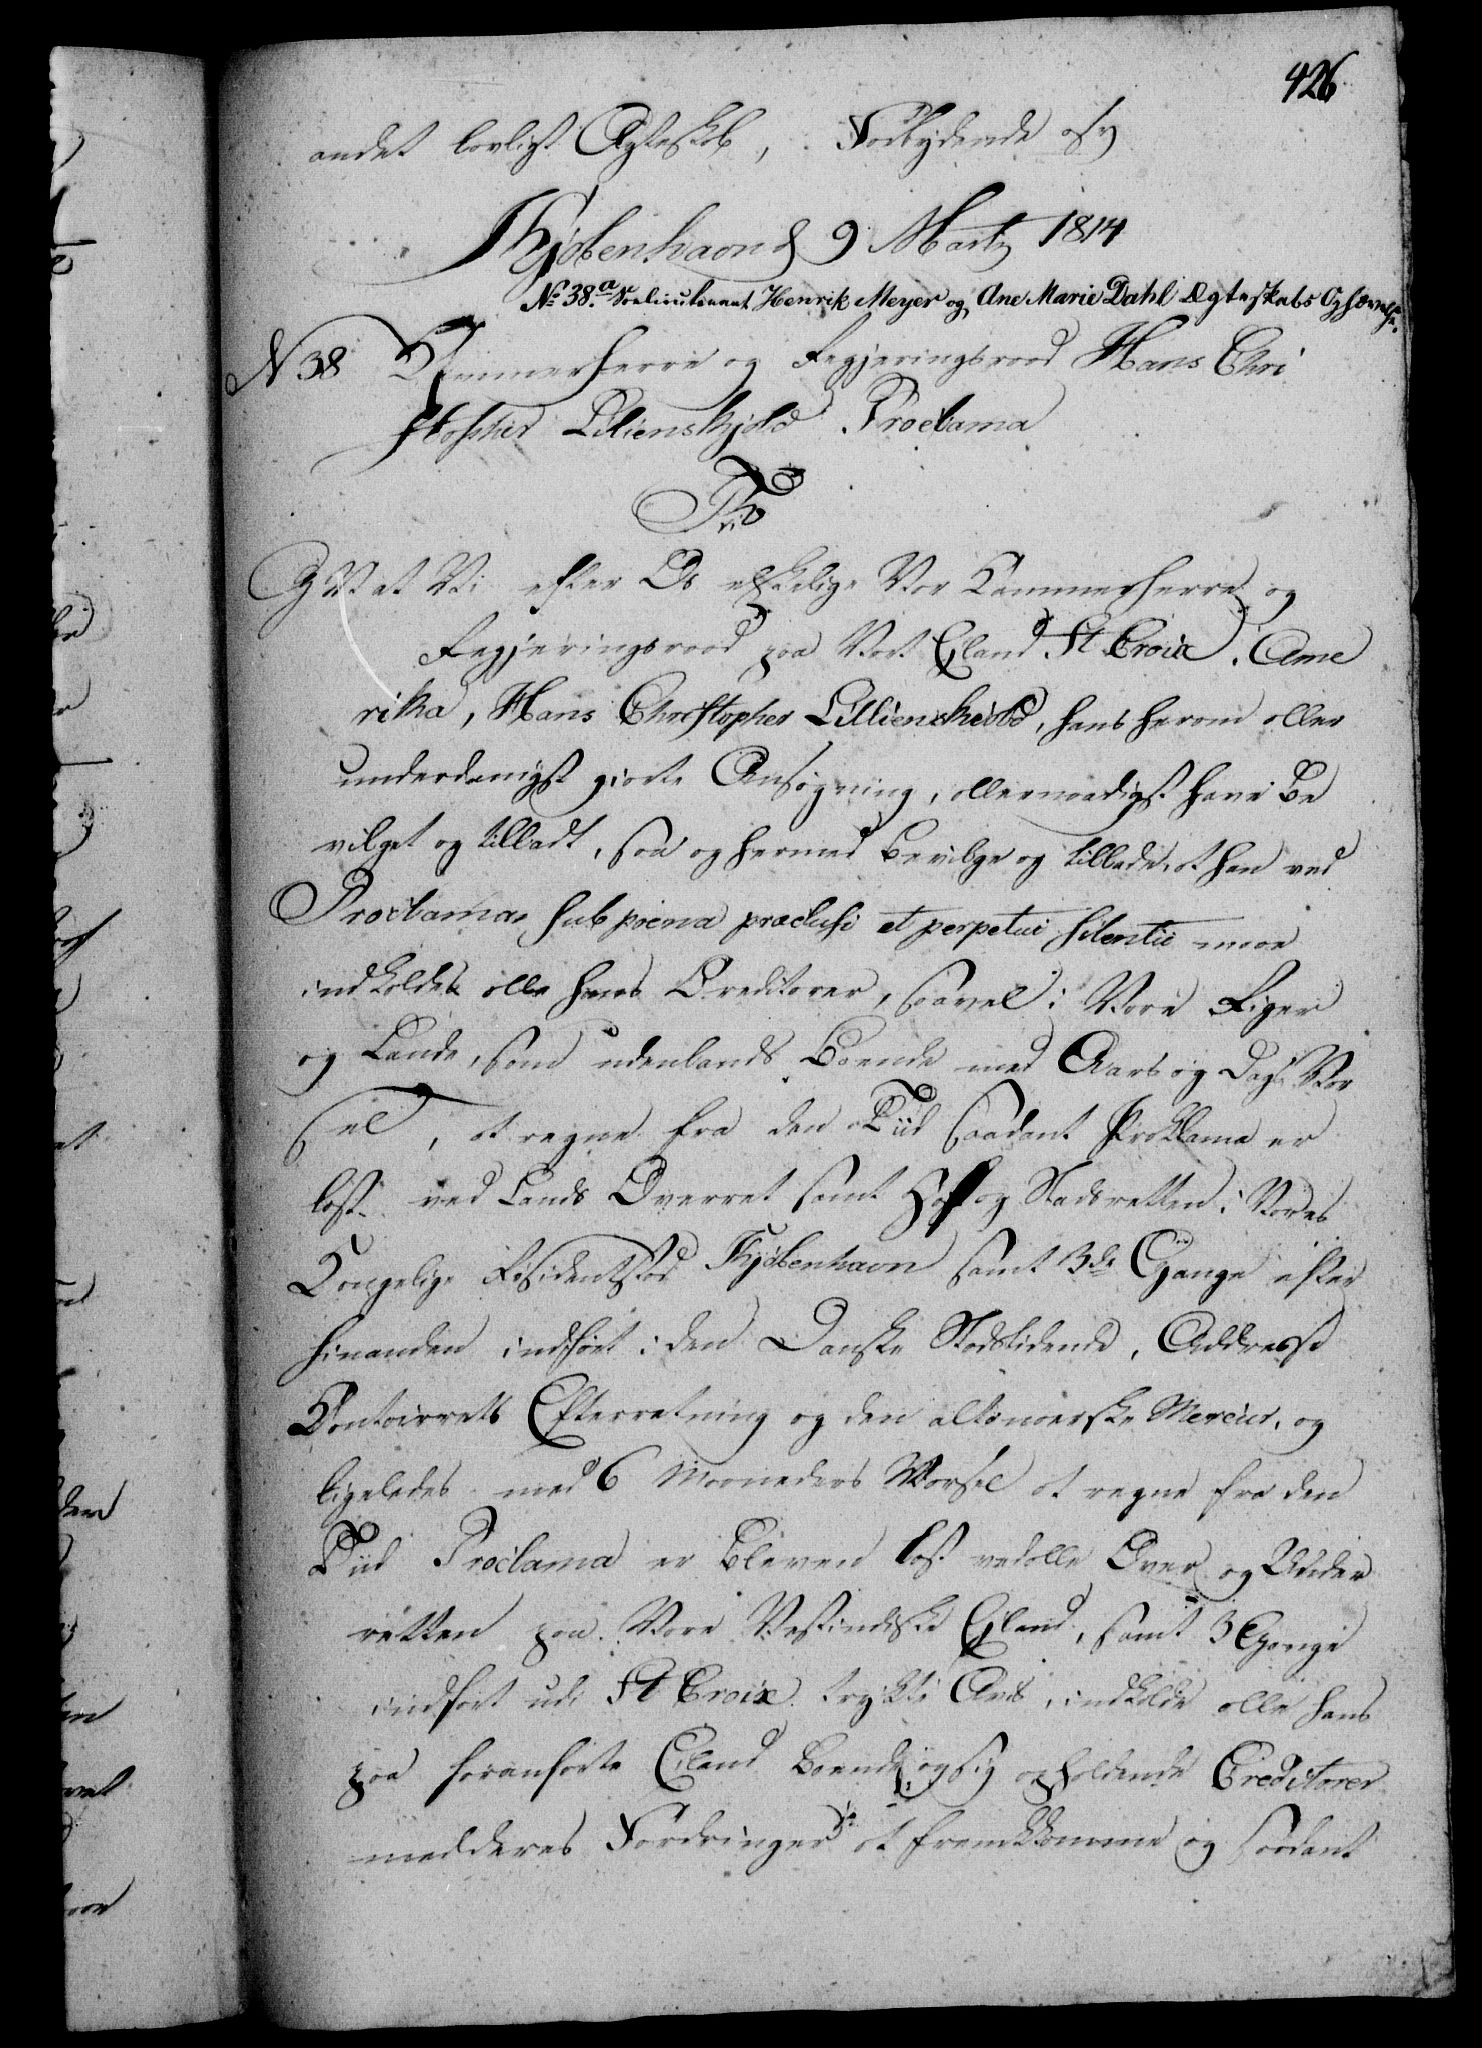 426
andet lovligt Ægteskab, Forbydende osv
Kjöbenhavn d 9 Marty 1814
No 38.a Soelieutenant Henrik Meyer og Ane Marie Dahl Ægteskabs Ophævelse.
N 38 Kammerherre og Regjeringsraad Hans Chri
stopher Lilienskjold Proclama
GV at Vi efter Os elskelige Vor Kammerherre og
Regjeringsraad paa Vort Eiland St Croix i Ame
rika, Hans Christopher Lillienskiold, hans herom aller
underdanigst giorte Ansøgning, allernaadigst have Be
vilget og tilladt, saa og hermed Bevilge og tillade, at han ved
Proclama, sub poena præclusi et perpetui silentii maae
indkalde alle hans Creditorer, saavel i Vore Riger
og Lande, som udenlands Boende med Aars og Dags Var
sel, at regne fra den Tiid saadant Proklama er
læst ved Lands Overret samt Hof og Stadsretten i Vores
Kongelige Residentsstad Kjøbenhavn samt 3de Gange efter
hinanden indført i den Danske Statstidende, Addresse
Contoirets Efterretning og den altonaerske Mercur, og
ligeledes med 6 Maaneders Warsel at regne fra den
Tiid Proclama er bleven læst ved alle Over og Under
retten paa Vore Vestindiske Eiland, samt 3 Gange
indført udi St Croix trykte Avis, indkalde alle hans
paa foranførte Eiland Boende og sig opholdende Creditorer
med deres Fordringer at fremkomme og saadant